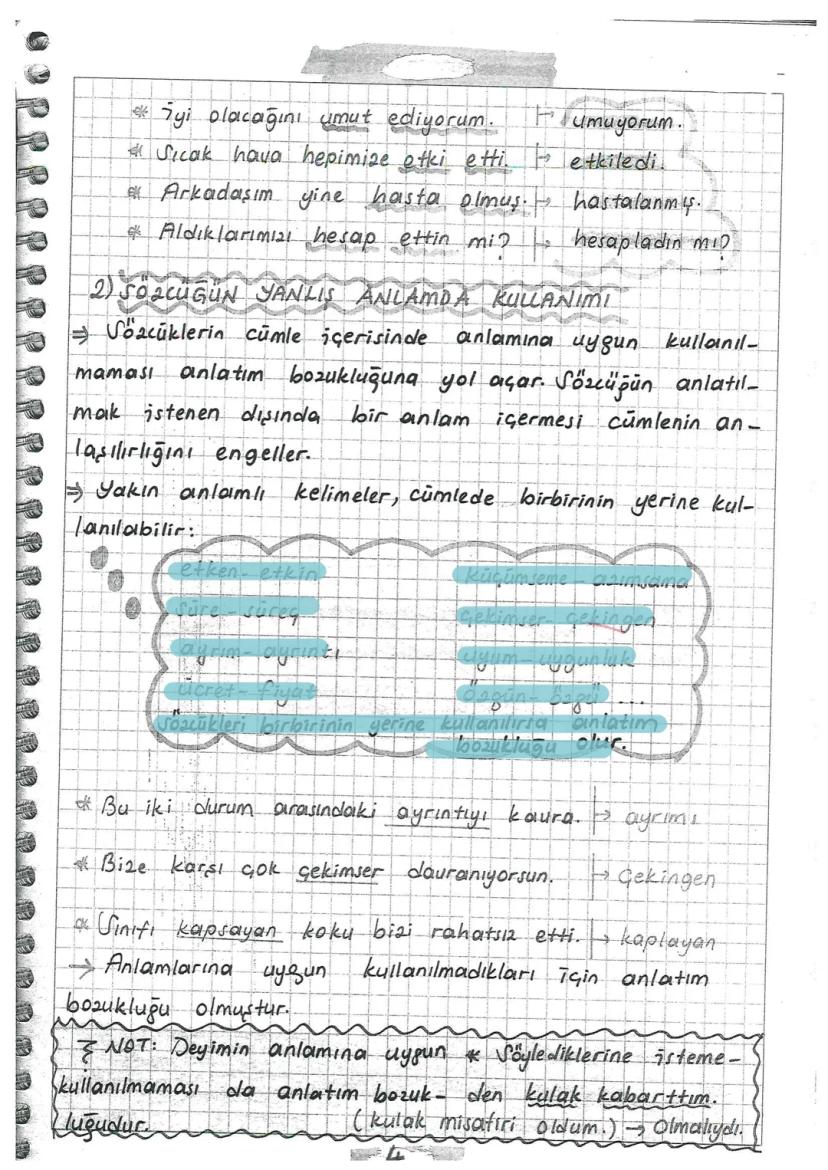 * İyi olacağını umut ediyorum. → umuyorum.
* Sıcak hava hepimize etki etti. → etkiledi.
* Arkadaşım yine hasta olmuş. → hastalanmış.
* Aldıklarımızı hesap ettin mi? → hesapladın mı?
2) SÖZCÜĞÜN YANLIŞ ANLAMDA KULLANIMI
⇒ Sözcüklerin cümle içerisinde anlamına uygun kullanıl-
maması anlatım bozukluğuna yol açar. Sözcüğün anlatıl-
mak istenen dışında bir anlam içermesi cümlenin an-
laşılırlığını engeller.
⇒ Yakın anlamlı kelimeler, cümlede birbirinin yerine kul-
lanılabilir:
etken - etkin küçümseme - azımsama
süre - süreç çekimser - çekingen
ayrım - ayrıntı uyum - uygunluk
ücret - fiyat özgün - özgü ....
Sözcükleri birbirinin yerine kullanılırsa anlatım
bozukluğu olur.
* Bu iki durum arasındaki ayrıntıyı kavra. → ayrımı
* Bize karşı çok çekimser davranıyorsun. → Çekingen
* Sınıfı kapsayan koku bizi rahatsız etti. → kaplayan
→ Anlamlarına uygun kullanılmadıkları için anlatım
bozukluğu olmuştur.
NOT: Deyimin anlamına uygun * Söylediklerine isteme-
kullanılmaması da anlatım bozuk- den kulak kabarttım.
luğudur. (kulak misafiri oldum.) → Olmalıydı.
4